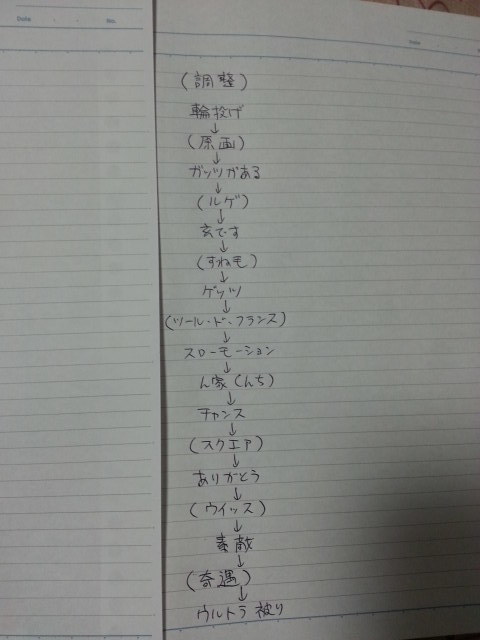 Date
No.
Date
(調整)
輪投げ
↓
(原画)
↓
ガッツがある
↓
(ルゲ)
↓
玄です
↓
(すね毛)
↓
ゲッツ
↓
(ツール・ド・フランス)
↓
スローモーション
↓
ん家(んち)
↓
チャンス
↓
(スクエア)
↓
ありがとう
↓
(ウイッス)
↓
素敵
↓
(奇遇)
↓
ウルトラ被り